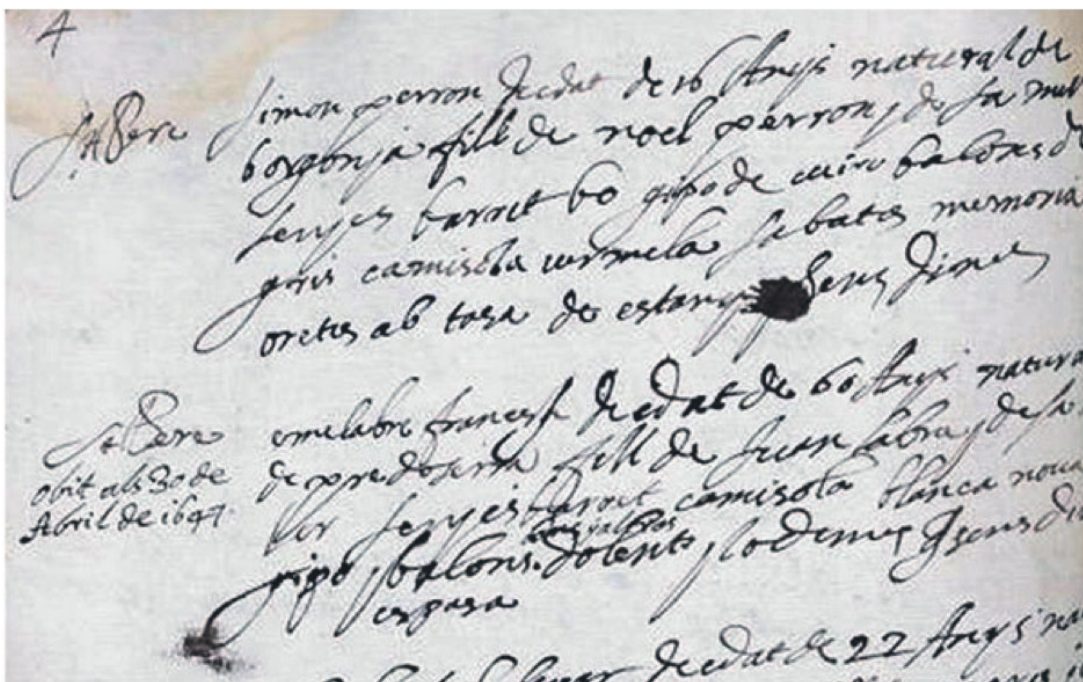 4
St Pere
simon perron de edat de 16 Anys natural de
borgonja fill de noel perron y de sa mul
senyes barret bo gipo de cuiro balons de
gris camisola vermela sabates memoria
oretes ab tasa de estany sens dine
St Pere
obit als 30 de
Abril de 1647
frances de edat de 60 Anys natura
de fill de Juan labra y de sa
senyes barret camisola blanca noua
gipo y balons dolents y lo demes sens di
espasa
de edat de 22 Anys na